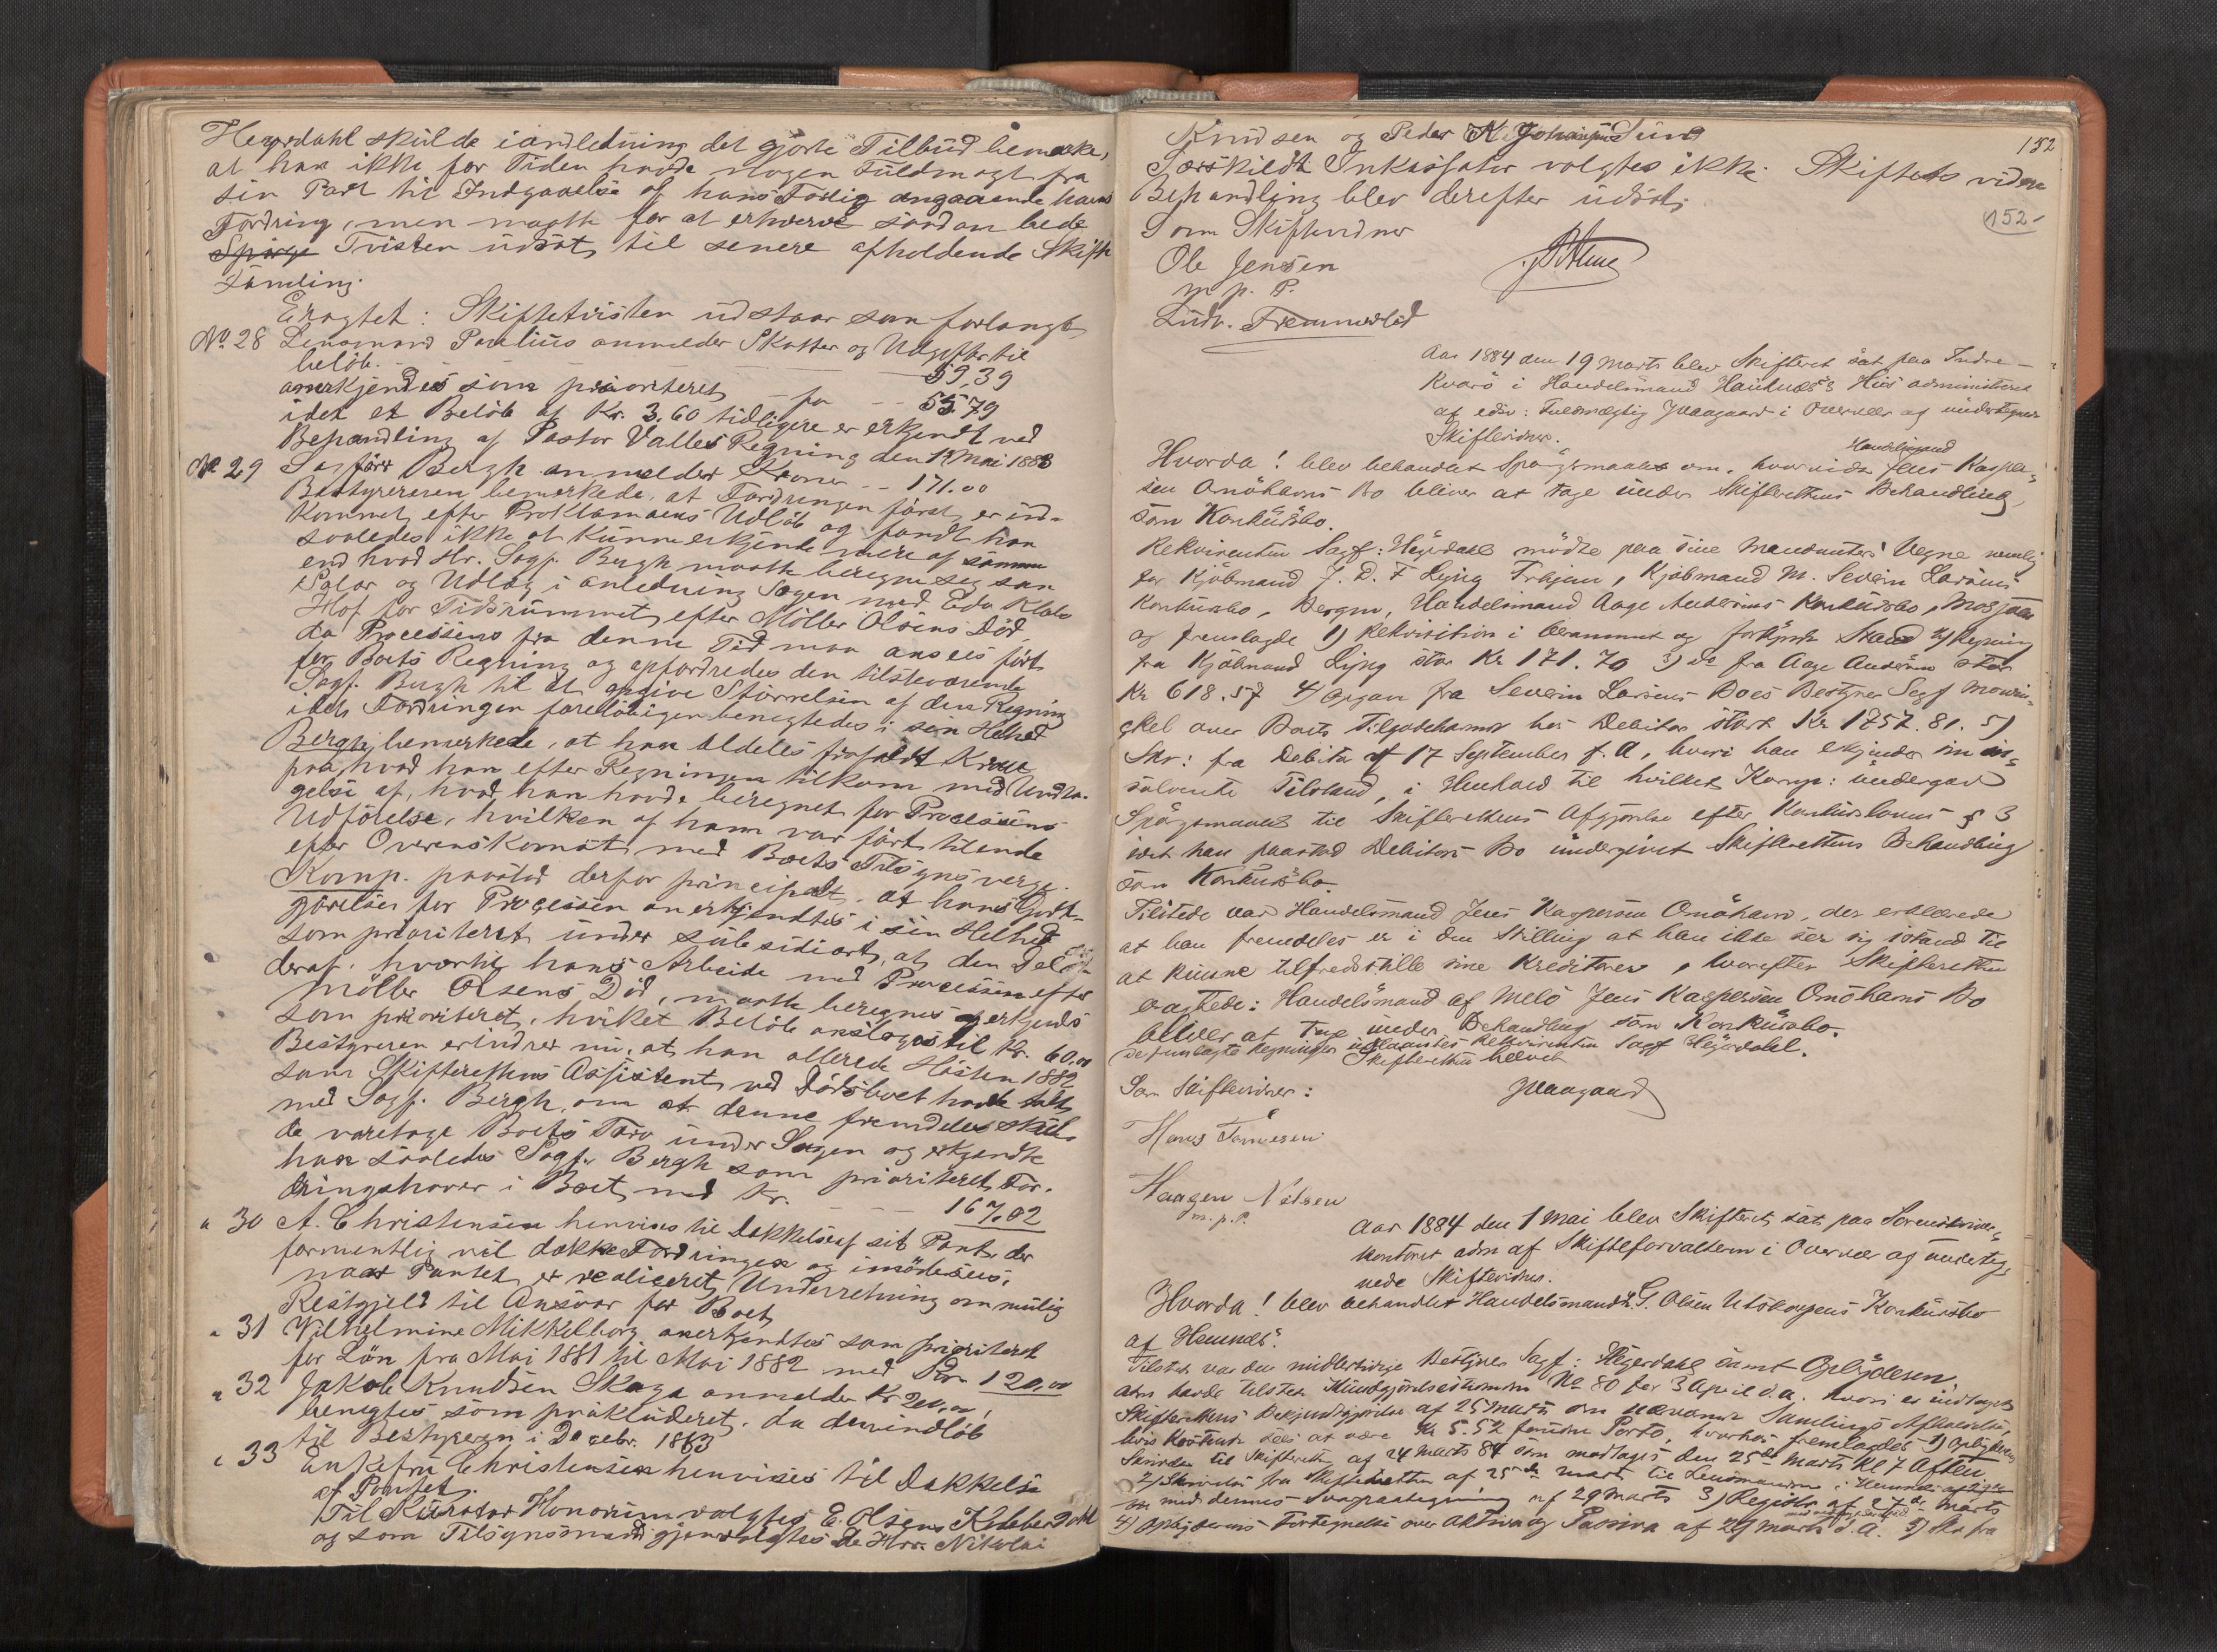 Hegerdahl skulde i andledning det gjorte Tilbud bemærke,
at han ikke for Tiden havde nogen Fuldmagt fra
sin Part til Indgaaelse af hans Forlig angaaende hans
Fordring, men maatte for at erhverve saadan bede
Tvisten udsat, til senere afholdende Skifte
samling.
Eragtet: Skiftetvisten udstaar som forlangt,
No. 28 Lensmand Paulius anmelder Skatter og Udgifter til
beløb. 59,39
anerkjendes som prioriteret, for 55 79
idet et Beløb af Kr. 3,60 tidligere er erkjendt ved
Behandling af Pastor Valles Regning den 12 Mai 1883
No. 29 Sagfører Bergh anmelder Kroner -- 171.00
Bestyreren bemerkede, at Fordringen først er ind-
kommet efter Proklamaens Udløb og fandt han
saaledes ikke at kunne erkjende mere af samme
end hvad Hr. Sagf. Bergh maatte beregne seg som
Salær og Udlæg i anledning Sagen mod Eda Klabo
Hof for Tidsrummet efter Møller Olsens Død
da Processens fra denne Tid maa ansees ført
for Boets Regning og opfordredes den tilstedeværende
Sagf. Bergh til at opgive Størrelsen af den Regning
idet Fordringen foreløbigen benegtedes i sin Helhed
Bergh, bemerkede, at han aldeles frafaldt Krav
paa, hvad han efter Regningen tilkom med Undta-
gelse af, hvad han havde beregnet for Processens
Udførelse, hvilken af ham var ført tilende
efter Overenskomst med Boets Tilsynsverge.
Komp. paastod derfor principalt, at hans Godt-
gjørelse for Processen anerkjendtes i sin Helhed
som prioriteret under subsidiært, at den Del
deraf, hvortil hans Arbeide med Processen efter
Møller Olsens Død, maatte beregnes og erkjends
som prioriteret, hvilket Beløb ansloges til Kr. 60,00
Bestyreren erindrer nu, at han allerede Høsten 1882
som Skifterettens Assistent ved Dødsboet havde talt
med Sagf. Bergh, om at denne fremdeles skul-
de varetage Boets Tarv under Sagen og erkjendte
han saaledes Sagf. Bergh som prioriteret For-
dringshaver i Boet med Kr. --- 167,02
" 30 A. Christensen henvises til Dækkelse af sit Pant, der
formentlig vil dække Fordringen og imødesees,
naar Pantet er realiseret, Underretning om mulig
Restgjeld til Ansvar for Boet,
" 31 Wilhelmine Mikkelborg anerkjendtes som prioriteret
for Løn fra Mai 1881 til Mai 1882 med Kr 120,00
" 32 Jakob Knudsen Skaga anmelder Kr 200,00,
benegtes som prækluderet, da den indløb
til Bestyreren i Decebr. 1883
" 33 Enkefru Christensen henvises til Dækkelse
af Pantet.
Til Kurator Honorum valgtes E. Olsens Kobberdahl
og som Tilsynsmænd gjenvalgtes De Hrr. Nikolai
152
Knudsen og Peder K. Johansen Sund
Særskildt Inkassator valgtes ikke. Skiftets videre
Behandling blev derefter udsat.
152
Som Skiftevidner
Ole Jensen
m. p. P.
Ludv.
Aar 1884 den 19 Marts blev Skifteret sat paa Indre-
Kvarø i Handelsmand Hanhues's Hus administreret
af edsv: Fuldmægtig Jvaagaard i Overvær af undertegnede
Skiftevidner.
Hvorda! blev behandlet Spørgsmaalet om, hvorvidt Handelsmand Jens Kasper-
sen Omøhavns Bo bliver at tage under Skifterettens Behandling
som Konkursbo.
Rekvirenten Sagf: Hegerdahl mødte paa sine Mandanters Vegne nemlig
for Kjøbmand J. D. F Lyng Trhjem, Kjøbmand M. Severin Larsens
Konkursbo, Bergen, Handelsmand Aage Andersens Konkursbo, Mosjøen
og fremlagde 1) Rekvisition i berammet og forkyndt Stand 2) Regning
fra Kjøbmand Lyng stor Kr 171.70 3) do fra Aage Andersen stor
Kr 618.57 4) Opgave fra Severin Larsens Boes Bestyrer Sagf Mowin-
ckel over Boets Tilgodehavende hos Debitor stort Kr 1757.81. 5)
Skr: fra Debitor af 17 September f. A, hvori han erkjender sin in-
solvente Tilstand, i Henhold til hvilket Komp: undergav
Spørgsmaalet til Skifterettens Afgjørelse efter Konkurslovens § 3
idet han paastod Debitors Bo undergivet Skifterettens Behandling
som Konkursbo.
Tilstede var Handelsmand Jens Kaspersen Omøhavn, der erklærede
at han fremdeles er i den Stilling at han ikke ser sig istand til
at kunne tilfredsstille sine Kreditorer, hvorefter Skifteretten
eragtede: Handelsmand af Melø Jens Kaspersen Omøhavns Bo
bliver at tage under Behandling som Konkursbo.
De fremlagte Regninger udlaantes Rekvirenten Sagf Hegerdahl.
Skifteretten hævet
Jvaagaard
Som Skiftevidner:
Hans Tønnesen
Haagen Nilsen
m. p. P.
Aar 1884 den 1 Mai blev Skifteret sat paa Sorenskriver-
kontoret adm af Skifteforvalteren i Overvær af underteg-
nede Skiftevidner.
Hvorda! blev behandlet Handelsmand L. G. Olsen Utskarpens Konkursbo
af Hemnes.
Tilstede var den midlertidige Bestyrer Sagf: Hegerdahl samt Opbyderen.
Adm havde tilstede Kundgjørelsestidende No 80 for 3 April d.a. hvori er indtaget
Skifterettens Bekjendtgjørelse af 25 Marts om nærværende Samlings Afholdelse,
hvis Kostende sees at være Kr 5.52 foruden Porto, hvorhos fremlagdes 1) Opbyderens
Skrivelse til Skifteretten af 24 Marts 84 som modtages den 25de Marts Kl 7 Aften
2) Skrivelse fra Skifteretten af 25de Mart til Lensmanden i Hemnes
med dennes Svarpaategning af 29 Marts 3) Registr. af 27de Marts
4) Opbyderens Fortegnelse over Aktiva og Passiva af 29 Marts d. A. 5) Skr fra